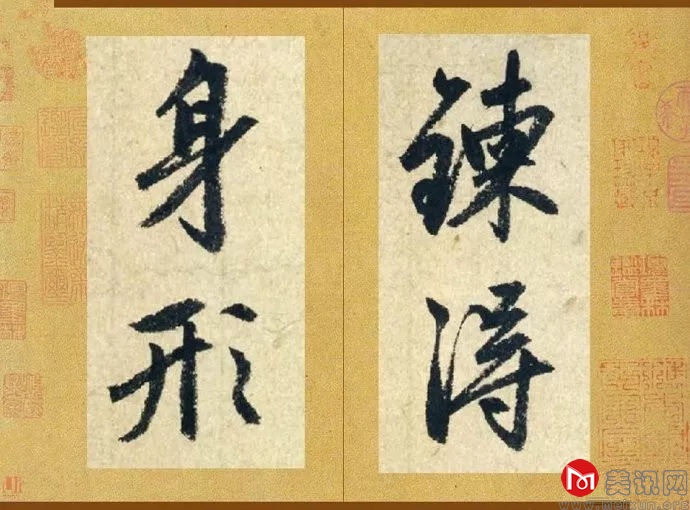 鍊得
身形
美讯网
www.meixun.org